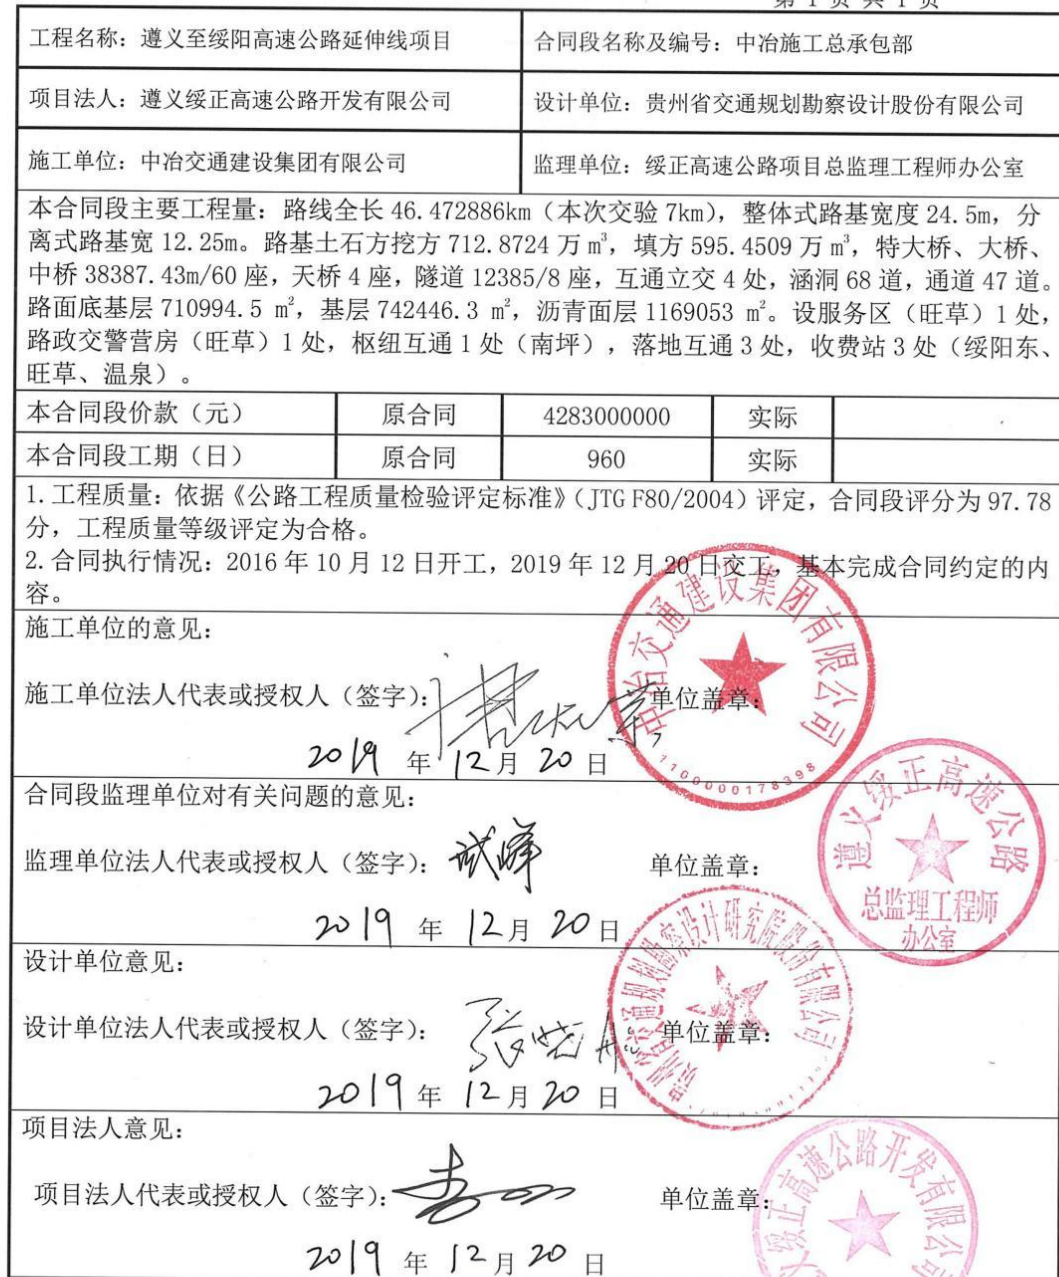 第 1 页 共 1 页
工程名称：遵义至绥阳高速公路延伸线项目
合同段名称及编号：中冶施工总承包部
项目法人：遵义绥正高速公路开发有限公司
设计单位：贵州省交通规划勘察设计股份有限公司
施工单位：中冶交通建设集团有限公司
监理单位：绥正高速公路项目总监理工程师办公室
本合同段主要工程量：路线全长 46.472886km（本次交验 7km），整体式路基宽度 24.5m，分
离式路基宽 12.25m。路基土石方挖方 712.8724 万 m³，填方 595.4509 万 m³，特大桥、大桥、
中桥 38387.43m/60 座，天桥 4 座，隧道 12385/8 座，互通立交 4 处，涵洞 68 道，通道 47 道。
路面底基层 710994.5 m²，基层 742446.3 m²，沥青面层 1169053 m²。设服务区（旺草）1 处，
路政交警营房（旺草）1 处，枢纽互通 1 处（南坪），落地互通 3 处，收费站 3 处（绥阳东、
旺草、温泉）。
本合同段价款（元） 原合同 4283000000 实际
本合同段工期（日） 原合同 960 实际
1.工程质量：依据《公路工程质量检验评定标准》（JTG F80/2004）评定，合同段评分为 97.78
分，工程质量等级评定为合格。
2.合同执行情况：2016 年 10 月 12 日开工，2019 年 12 月 20 日交工，基本完成合同约定的内
容。
施工单位的意见：
施工单位法人代表或授权人（签字）： 单位盖章：
2019 年 12 月 20 日
中冶交通建设集团有限公司
1100000178398
合同段监理单位对有关问题的意见：
监理单位法人代表或授权人（签字）： 单位盖章：
2019 年 12 月 20 日
遵义绥正高速公路
总监理工程师
办公室
设计单位意见：
设计单位法人代表或授权人（签字）： 单位盖章：
2019 年 12 月 20 日
贵州省交通规划勘察设计研究院股份有限公司
项目法人意见：
项目法人代表或授权人（签字）： 单位盖章：
2019 年 12 月 20 日
义绥正高速公路开发有限公司